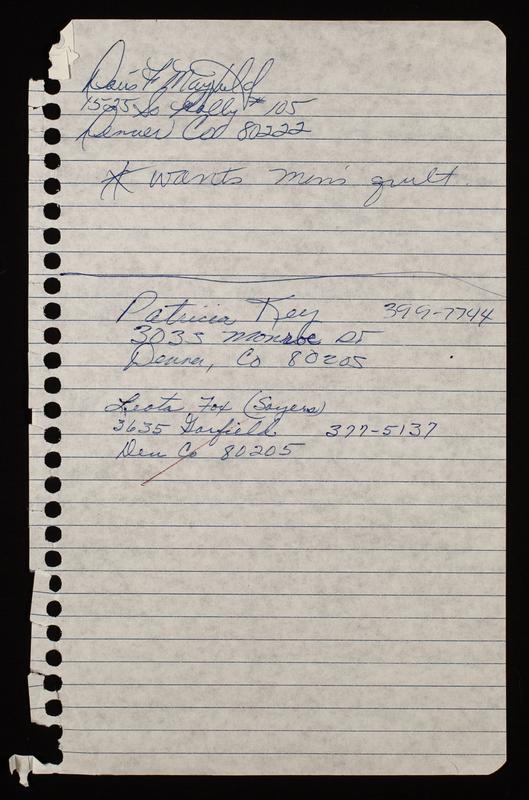 Doris F. Mayfield
1525 So Holly # 105
Denver Co 80222
* wants men's quilt.
Patricia Key 399-7744
3033 Monroe St
Denver, Co 80205
Leota Fox (Sayers)
3635 Garfield 377-5137
Den Co 80205